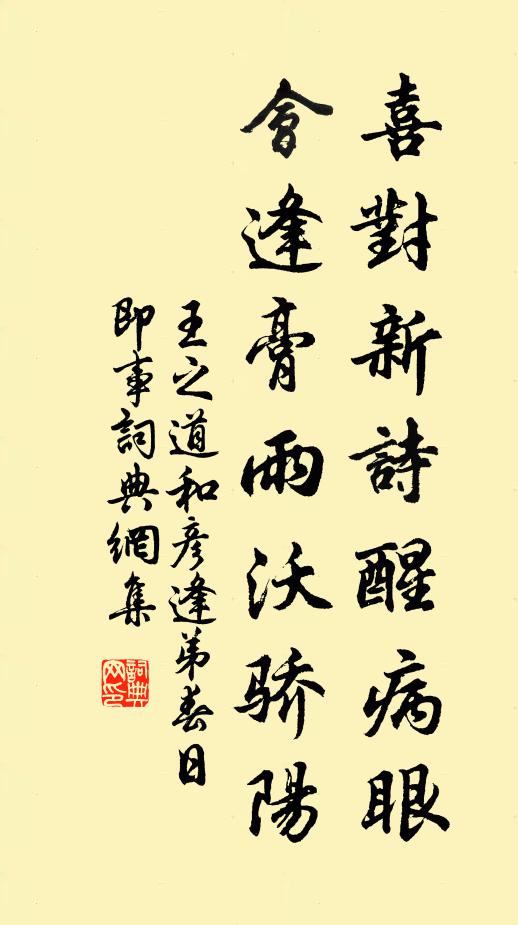 喜對新詩醒病眼
會逢膏雨沃骄陽
王之道和彥逢弟春日
即事詞典網集
詞典网印